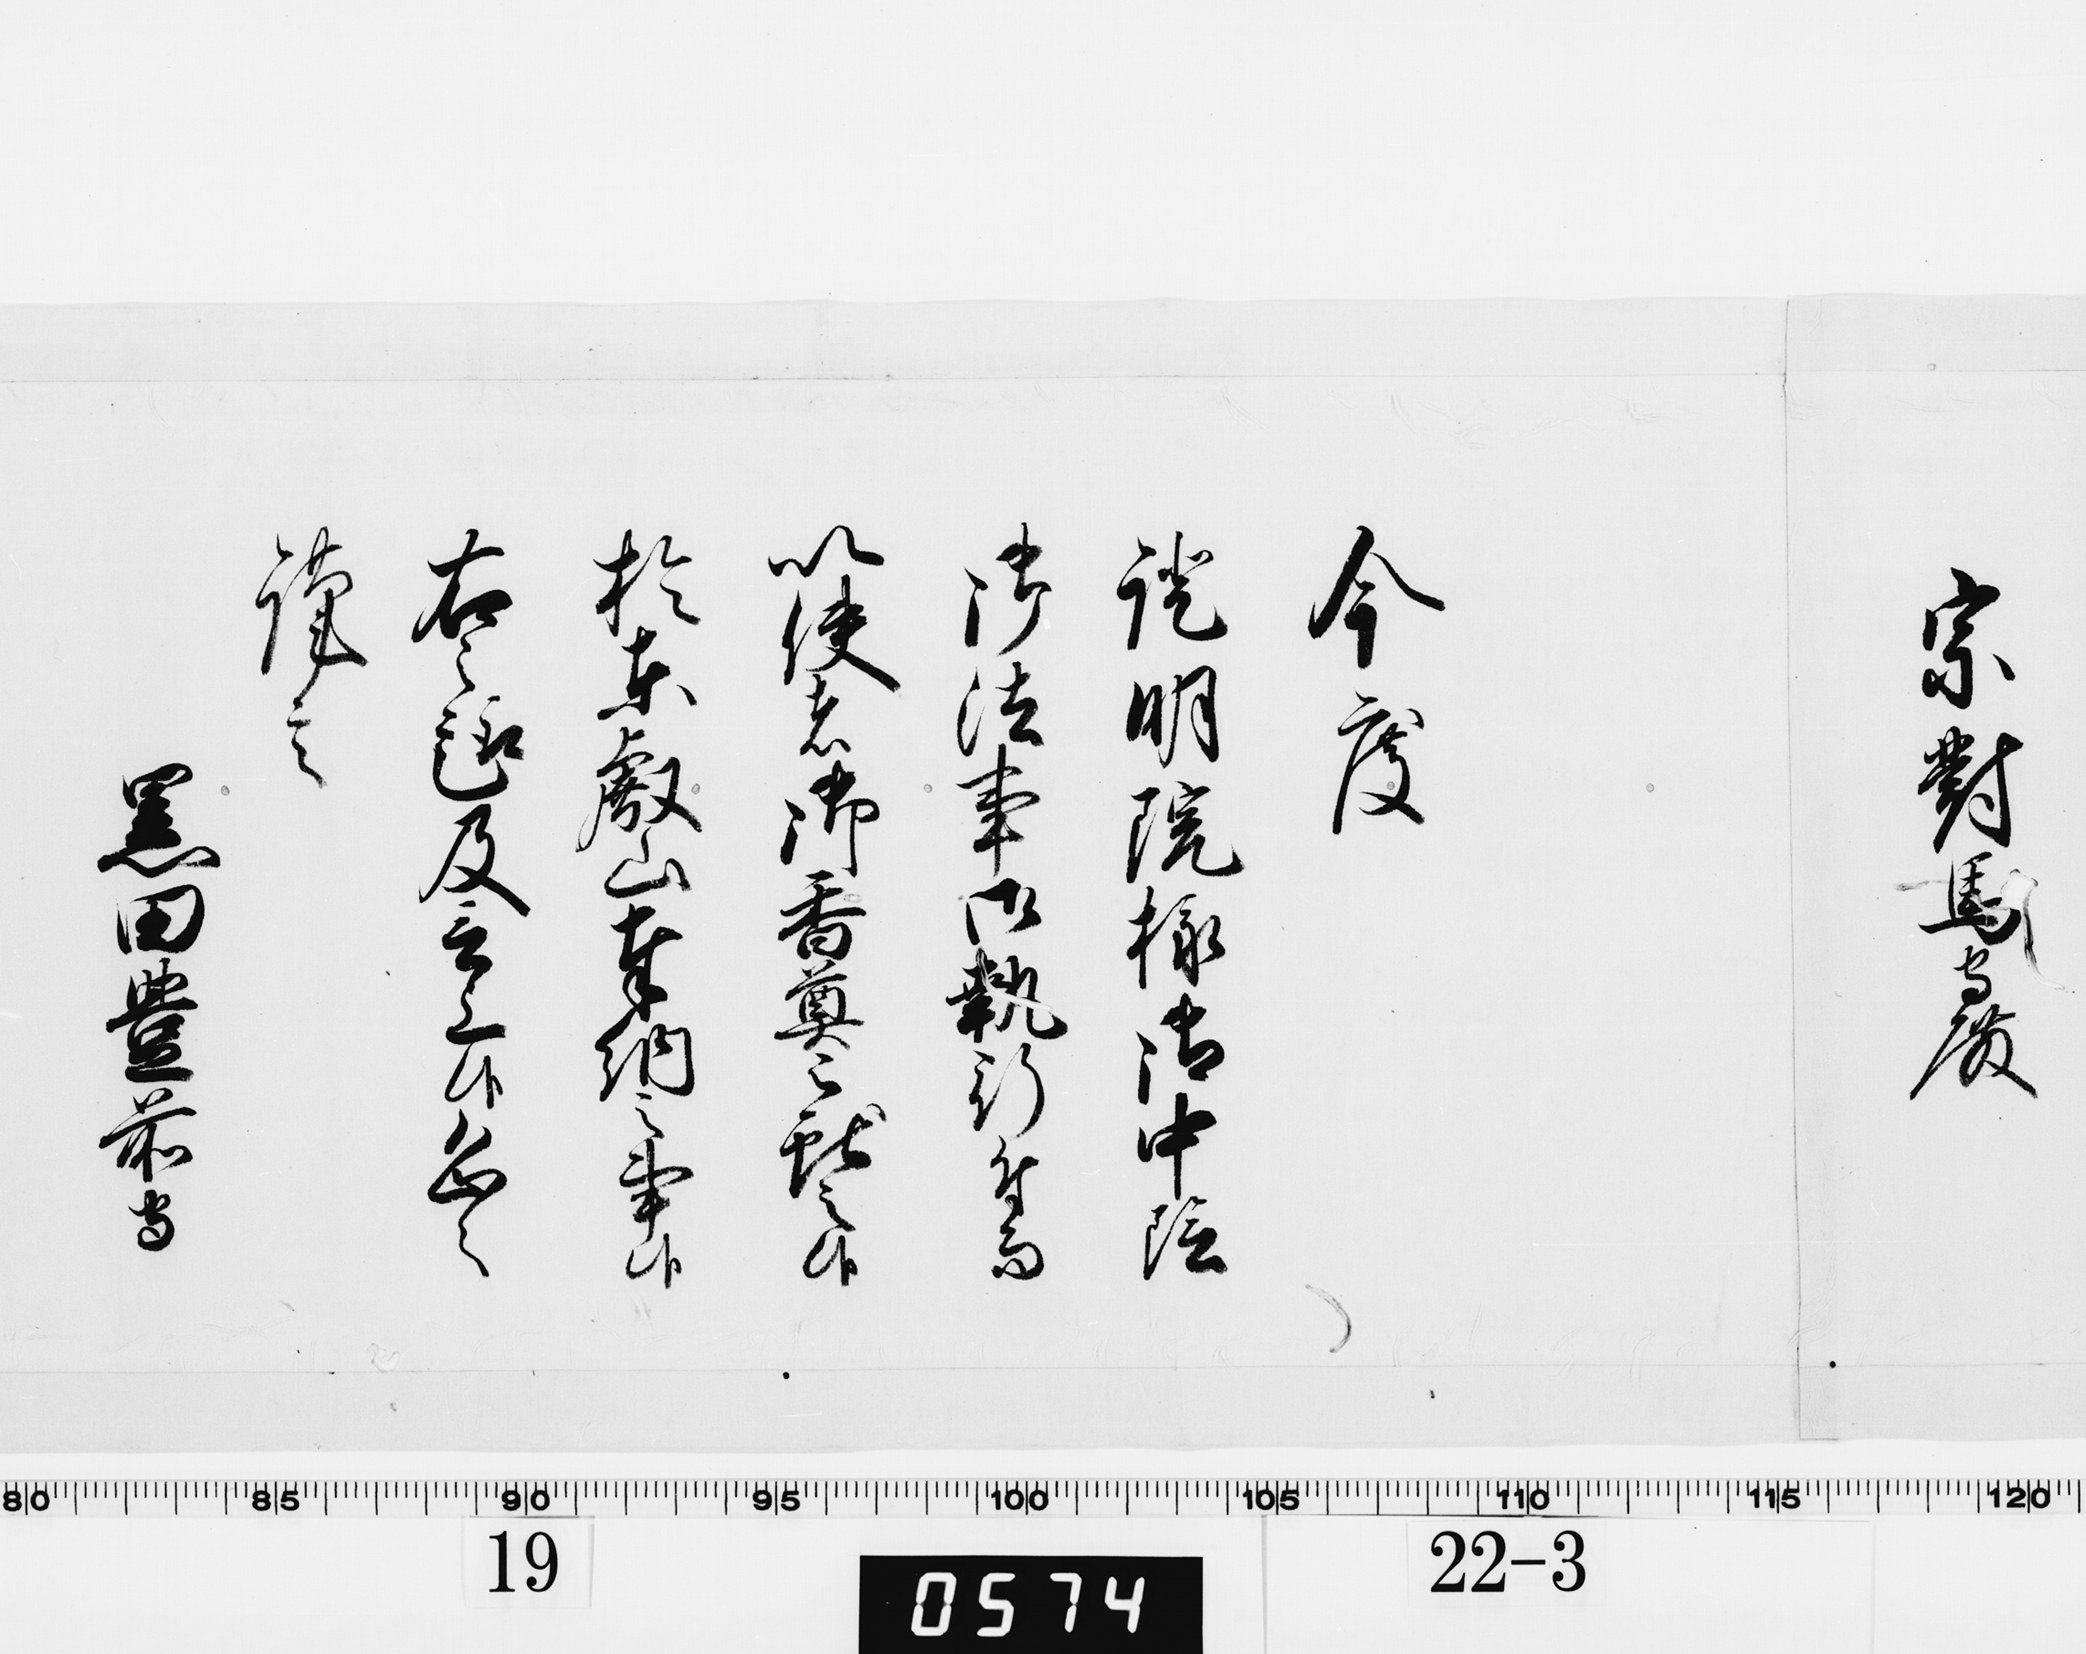 宗對馬守殿
今度
證明院様御中陰
御法事御執行付而
以使者御香奠被獻之候
於東叡山奉納之事候
右之趣及言上候恐々
謹言
黒田豊前守
80 85 90 95 100 105 110 115 120
19 0574 22-3